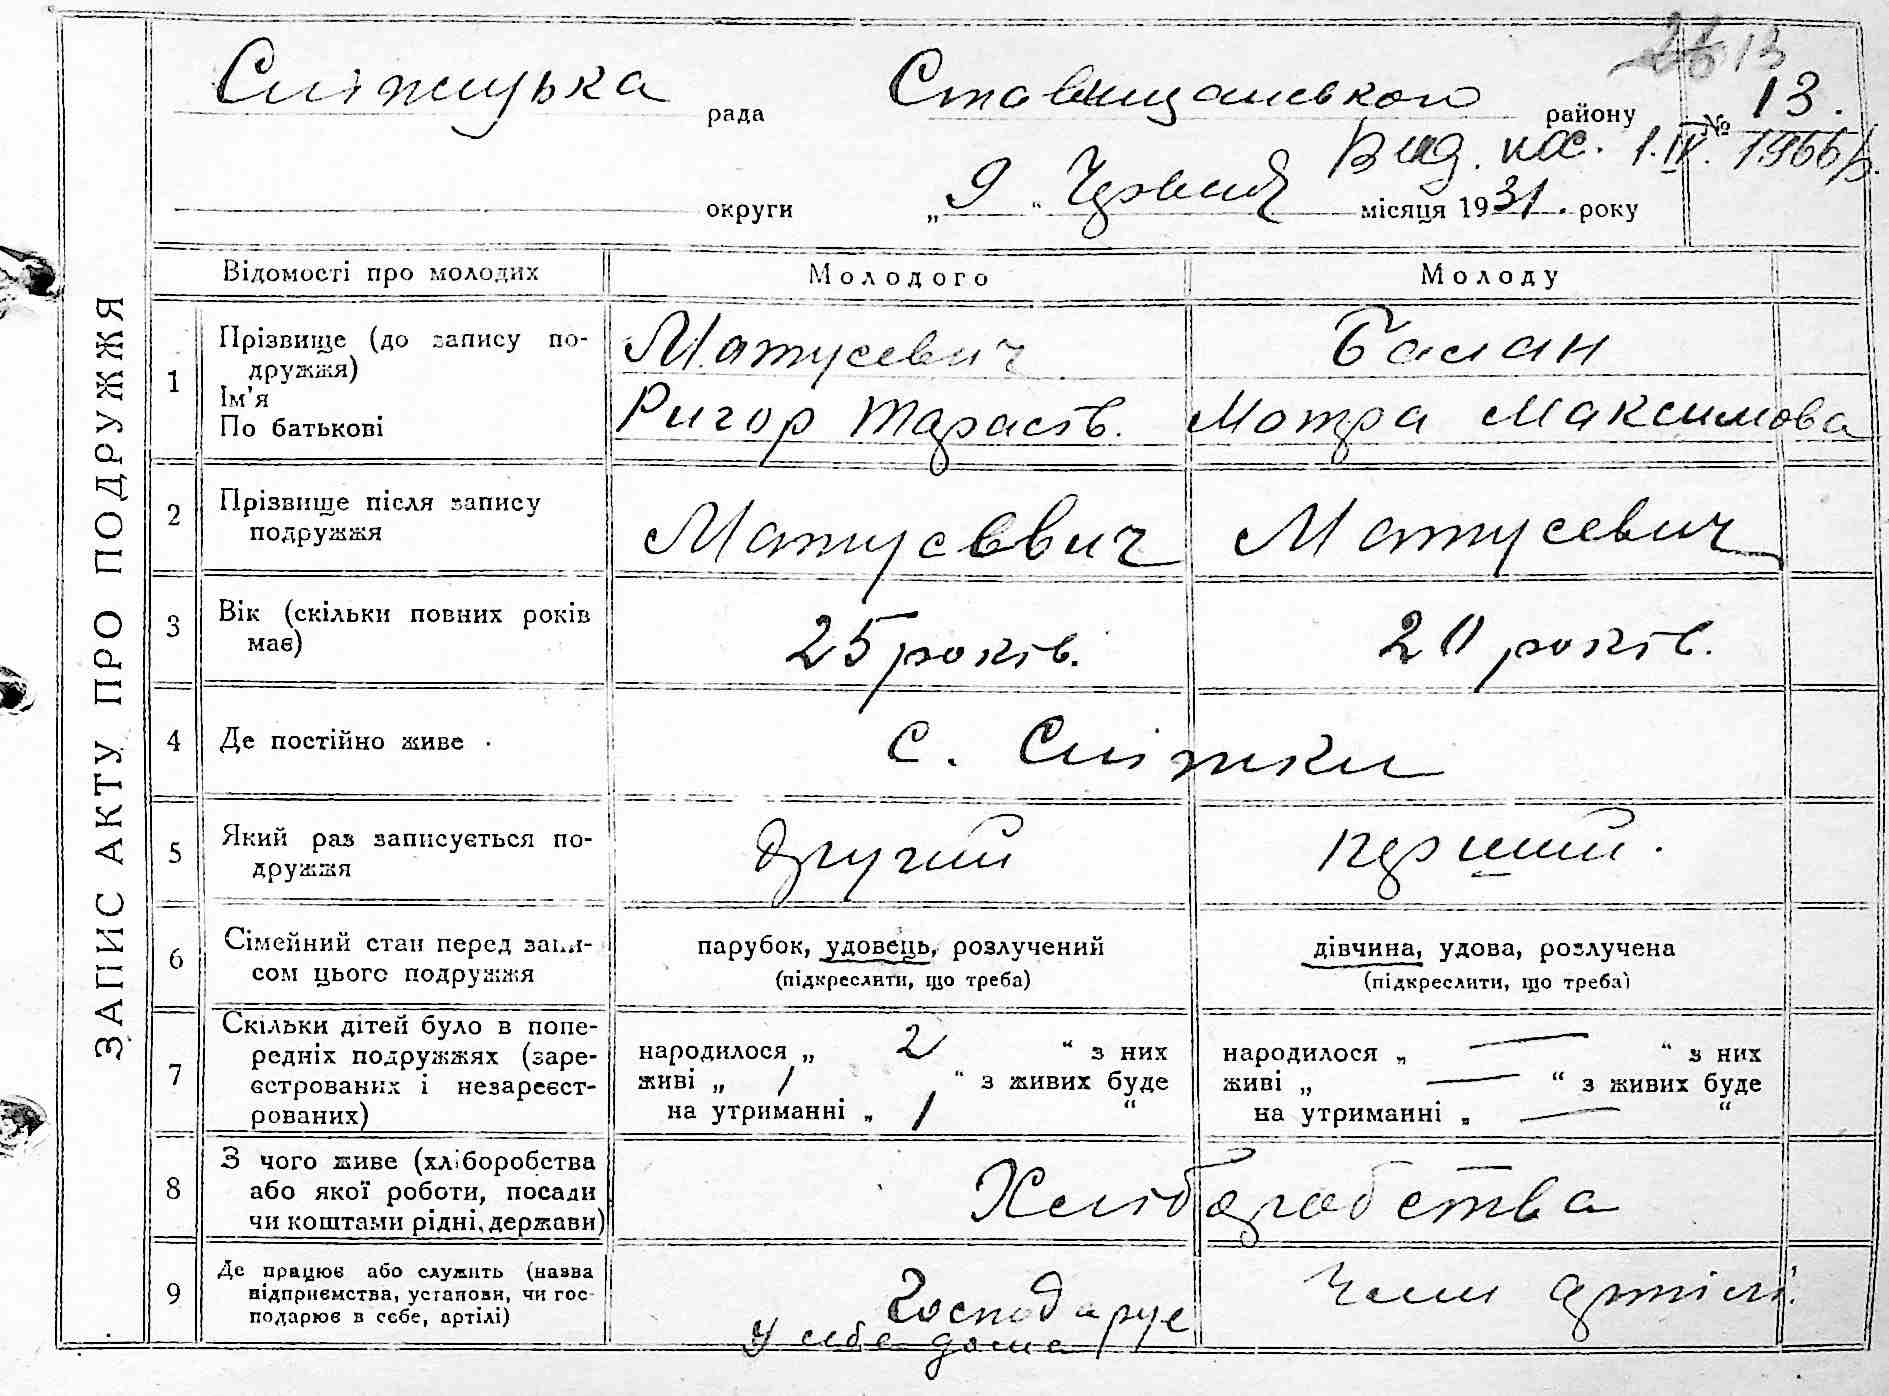 13
Сніжицька рада Ставищанського району № 13.
Вид. 1.IV. 1966 р.
округи „ 9 “ Червня місяця 1931. року
ЗАПИС АКТУ ПРО ПОДРУЖЖЯ
Відомості про молодих Молодого Молоду
1 Прізвище (до запису по-
дружжя)
Ім'я
По батькові
Матусевич Балан
Ригор Тарасів. Мотра Максимова
2 Прізвище після запису
подружжя
Матусевич Матусевич
3 Вік (скільки повних років
має)
25 років. 20 років.
4 Де постійно живе
с. Сніжки
5 Який раз записується по-
дружжя
другий перший.
6 Сімейний стан перед запи-
сом цього подружжя
парубок, удовець, розлучений
(підкреслити, що треба)
дівчина, удова, розлучена
(підкреслити, що треба)
7 Скільки дітей було в попе-
редніх подружжях (заре-
єстрованих і незареєст-
рованих)
народилося „ 2 “ з них
живі „ 1 “ з живих буде
на утриманні „ 1 “
народилося „ — “ з них
живі „ — “ з живих буде
на утриманні „ — “
8 З чого живе (хліборобства
або якої роботи, посади
чи коштами рідні, держави)
Хліборобства
9 Де працює або служить (назва
підприємства, установи, чи гос-
подарює в себе, артілі)
Господарує
у себе дома
Член артілі.